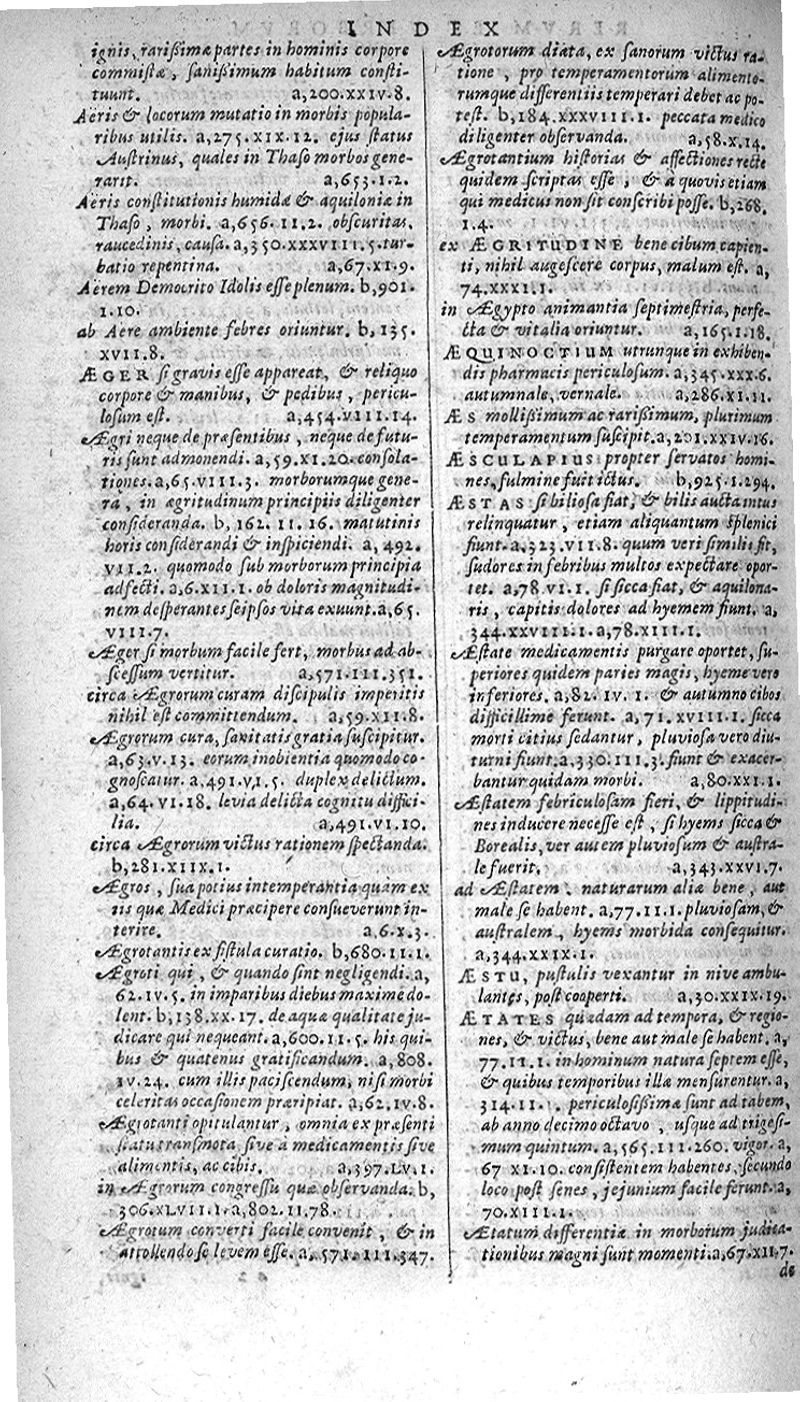 INDEX
ignis, rarißimæ partes in hominis corpore
commistæ, sanißimum habitum consti-
tuunt. a,200.XXIV.8.
Aëris & locorum mutatio in morbis popula-
ribus utilis. a,275.XIX.12. ejus status
Austrinus, quales in Thaso morbos gene-
rarit. a,653.1.2.
Aëris constitutionis humidæ & aquiloniæ in
Thaso, morbi. a,656.11.2. obscuritas,
raucedinis, causa. a,350.XXXVIII.5. tur-
batio repentina. a,67.XI.9.
Aërem Democrito Idolis esse plenum. b,901
1.10.
ab Aëre ambiente febres oriuntur. b,135.
XVII.8.
ÆGER si gravis esse appareat, & reliquo
corpore & manibus, & pedibus, pericu-
losum est. a,454.VIII.14.
Ægri neque de præsentibus, neque de futu-
ris sunt admonendi. a,59.XI.20. consola-
tiones. a,65.VIII.3. morborumque gene-
ra, in ægritudinum principiis diligenter
consideranda. b,162.11.16. matutinis
horis considerandi & inspiciendi. a,492.
VII.2. quomodo sub morborum principia
adfecti. a,6.XII.1. ob doloris magnitudi-
nem desperantes seipsos vita exuunt. a,65.
VIII.7.
Æger si morbum facile fert, morbus ad ab-
scessum vertitur. a,571.III.351.
circa Ægrorum curam discipulis imperitis
nihil est committendum. a,59.XII.8.
Ægrorum cura, sanitatis gratia suscipitur.
a,63.V.13. eorum inobientia quomodo co-
gnoscatur. a,491.VI.5. duplex delictum.
a,64.VI.18. levia delicta cognitu diffici-
lia. a,491.VI.10.
circa Ægrorum victus rationem spectanda.
b,281.XIIX.1.
Ægros, sua potius intemperantia quam ex
iis quæ Medici præcipere consueverunt in-
terire. a,6.X.3.
Ægrotantis ex fistula curatio. b,680.11.1.
Ægroti qui, & quando sint negligendi. a,
62.IV.5. in imparibus diebus maxime do-
lent. b,138.XX.17. de aquæ qualitate ju-
dicare qui nequeant. a,600.11.5. his qui-
bus & quatenus gratificandum. a,808.
IV.24. cum illis paciscendum, nisi morbi
celeritas occasionem præripiat. a,62.IV.8.
Ægrotanti opitulantur, omnia ex præsenti
statu transmota, sive à medicamentis sive
alimentis, ac cibis. a,397.LV.1.
in Ægrorum congressu quæ observanda. b,
306.XLVII.1. a,802.11.78.
Ægrotum converti facile convenit, & in
attollendo se levem esse. a,571.III.347.
Ægrotorum diæta, ex sanorum victus ra-
tione, pro temperamentorum alimento-
rumque differentiis temperari debet ac po-
test. b,184.XXXVIII.1. peccata medico
diligenter observanda. a,58.X.14.
Ægrotantium historias & affectiones recte
quidem scriptas esse, & à quovis etiam
qui medicus non sit conscribi posse. b,268.
1.4.
ex ÆGRITUDINE bene cibum capien-
ti, nihil augescere corpus, malum est. a,
74.XXXI.1.
in Ægypto animantia septimestria, perfe-
cta & vitalia oriuntur. a,165.1.18.
ÆQUINOCTIUM utrunque in exhiben-
dis pharmacis periculosum. a,345.XXX.6.
autumnale, vernale. a,286.XI.11.
ÆS mollißimum ac rarißimum, plurimum
temperamentum suscipit. a,201.XXIV.16.
ÆSCULAPIUS propter servatos homi-
nes, fulmine fuit ictus. b,925.1.294.
ÆSTAS si biliosa fiat, & bilis aucta intus
relinquatur, etiam aliquantum splenici
fiunt. a,323.VII.8. quum veri similis sit,
sudores in febribus multos expectare opor-
tet. a,78.VI.1. si sicca fiat, & aquilona-
ris, capitis dolores ad hyemem fiunt. a,
344.XXVIII.1. a,78.XIII.1.
Æstate medicamentis purgare oportet, su-
periores quidem partes magis, hyeme vero
inferiores. a,82.IV.1. & autumno cibos
difficillime ferunt. a,71.XVIII.1. sicca
morti citius sedantur, pluviosa vero diu-
turni fiunt. a,330.III.3. fiunt & exacer-
bantur quidam morbi. a,80.XXI.1.
Æstatem febriculosam fieri, & lippitudi-
nes inducere necesse est, si hyems sicca &
Borealis, ver autem pluviosum & austra-
le fuerit. a,343.XXVI.7.
ad Æstatem naturarum aliæ bene, aut
male se habent. a,77.11.1. pluviosam, &
australem, hyems morbida consequitur.
a,344.XXIX.1.
ÆSTU, pustulis vexantur in nive ambu-
lantes, post cooperti. a,30.XXIX.19.
ÆTATES quædam ad tempora, & regio-
nes, & victus, bene aut male se habent. a,
77.11.1. in hominum natura septem esse,
& quibus temporibus illæ mensurentur. a,
314.11. periculosißimæ sunt ad tabem,
ab anno decimo octavo, usque ad trigesi-
mum quintum. a,565.III.260. vigor. a,
67 XI.10. consistentem habentes, secundo
loco post senes, jejunium facile ferunt. a,
70.XIII.1.
Ætatum differentiæ in morborum judica-
tionibus magni sunt momenti. a,67.XII.7.
de